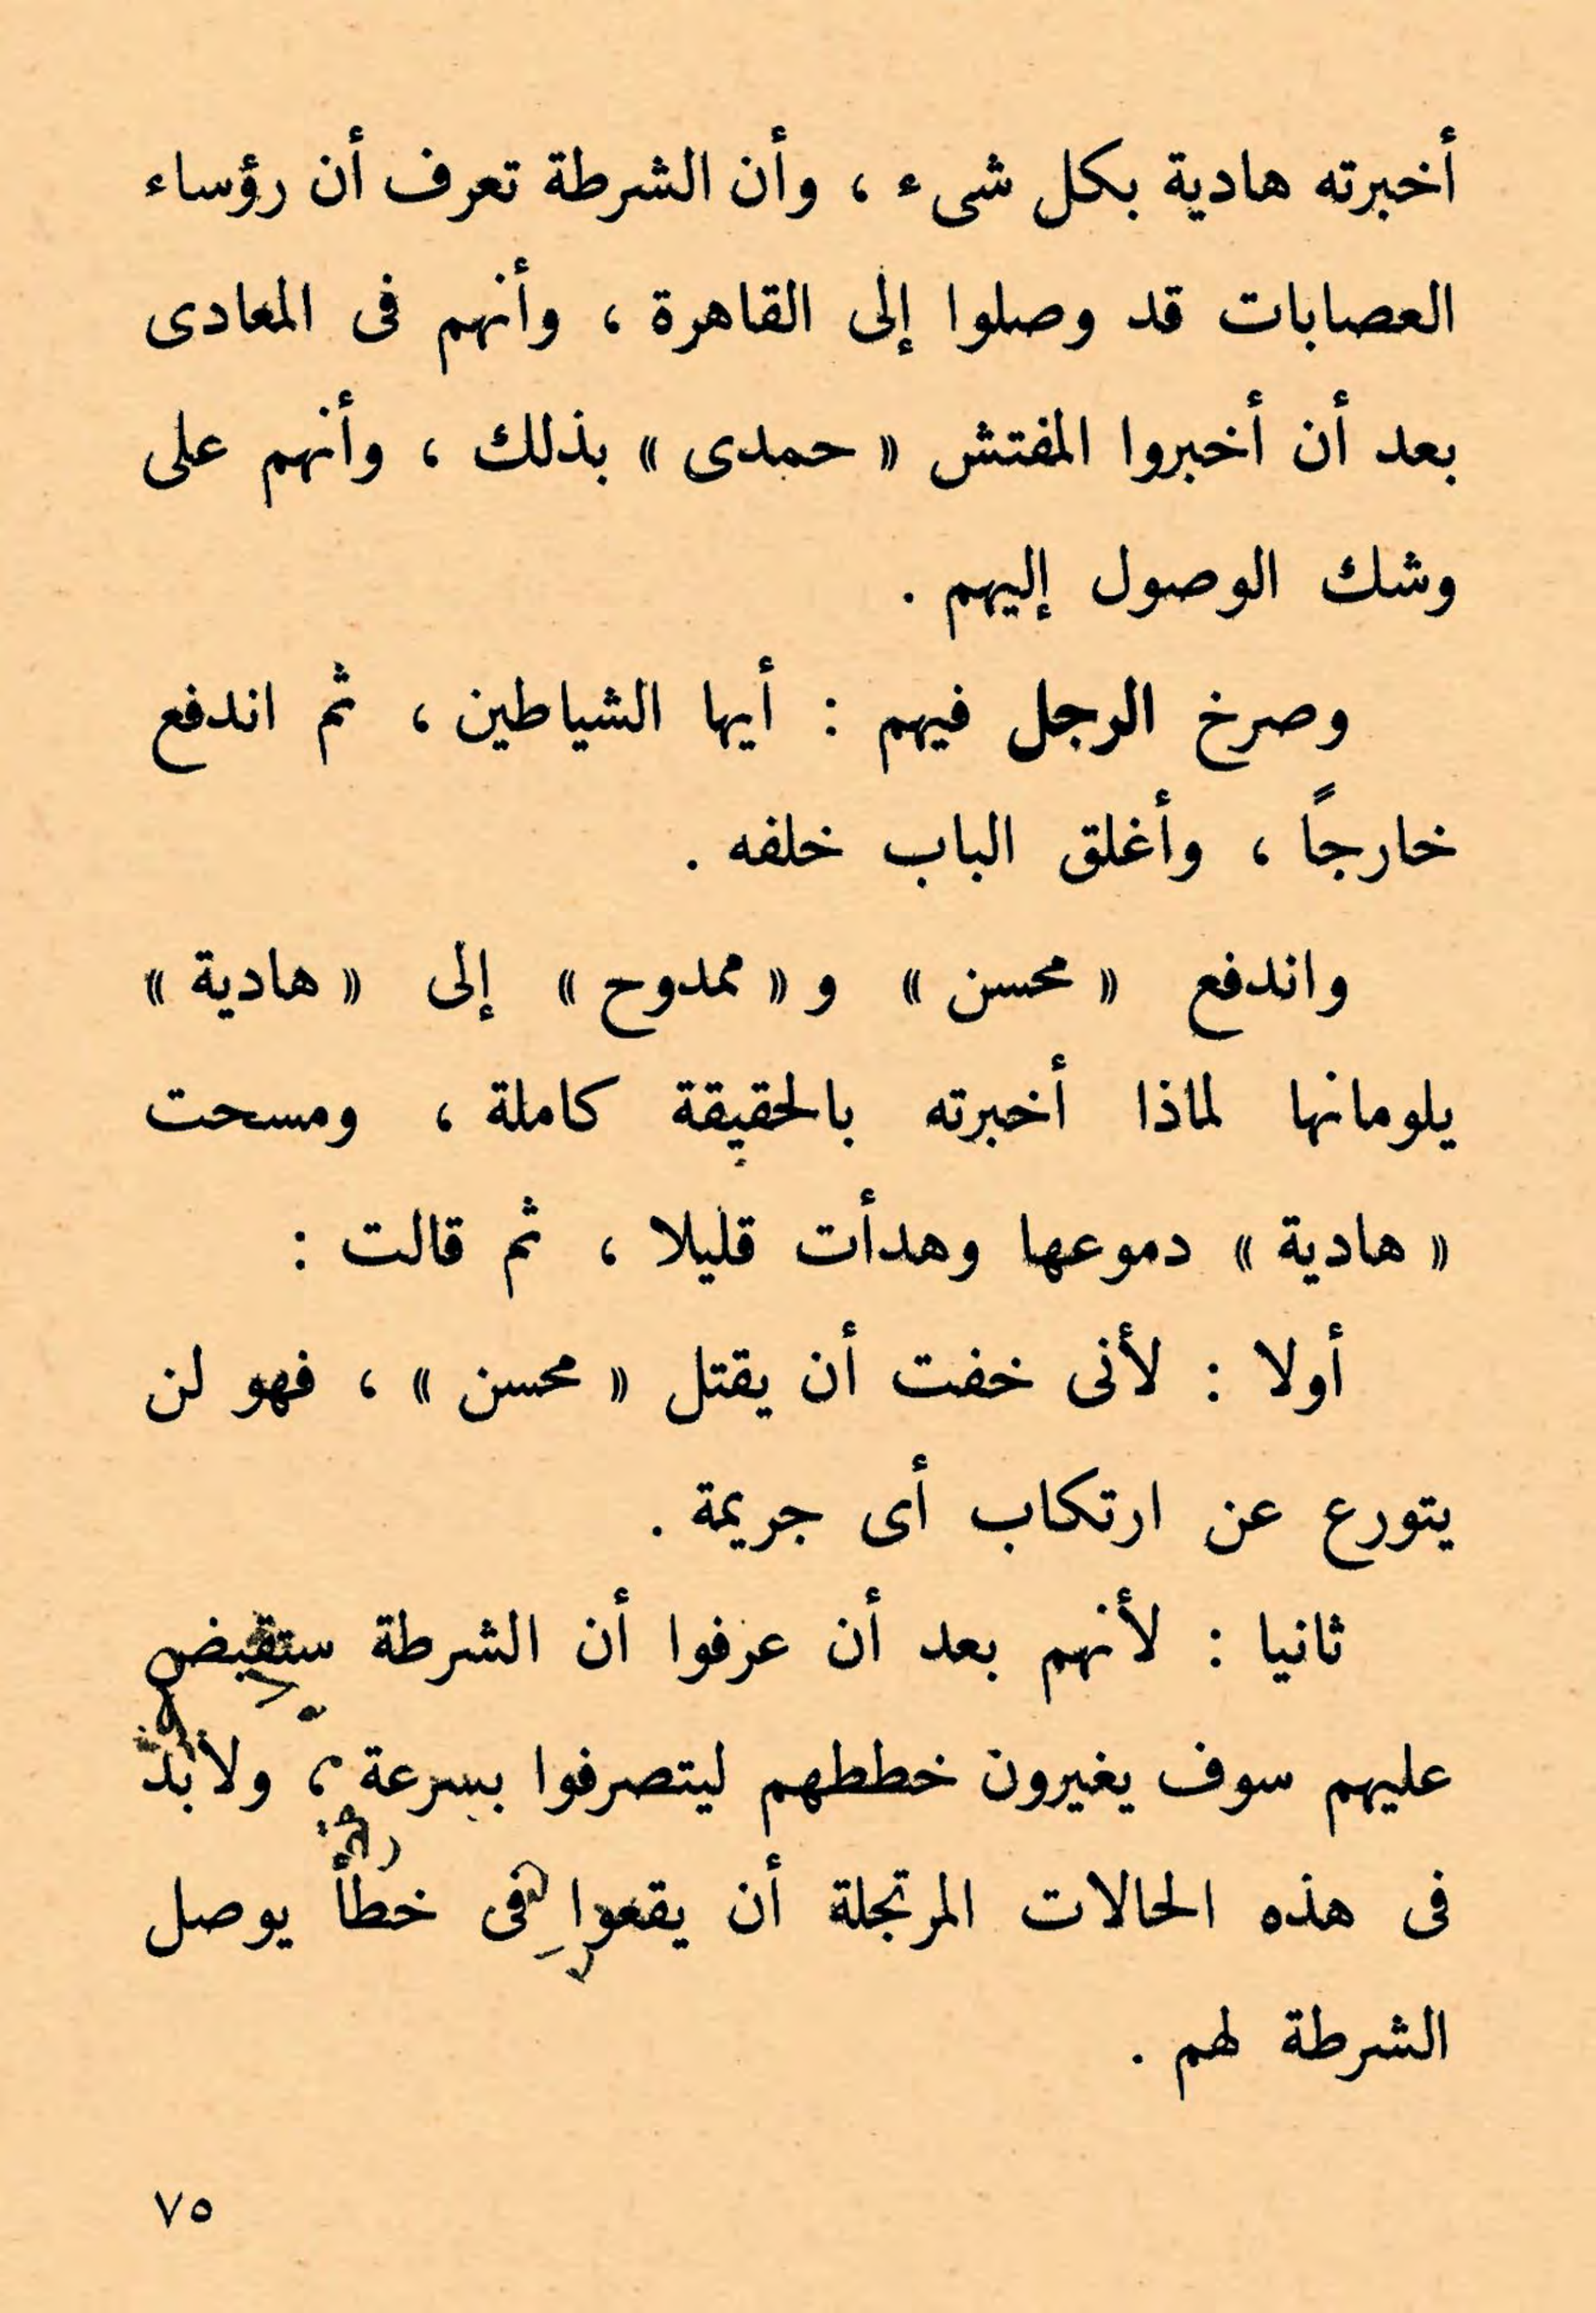 أخبرته هادية بكل شىء ، وأن الشرطة تعرف أن رؤساء
العصابات قد وصلوا إلى القاهرة ، وأنهم فى المعادى
بعد أن أخبروا المفتش « حمدى » بذلك ، وأنهم على
وشك الوصول إليهم .
وصرخ الرجل فيهم : أيها الشياطين ، ثم اندفع
خارجاً ، وأغلق الباب خلفه .
واندفع « محسن » و « ممدوح » إلى « هادية »
يلومانها لماذا أخبرته بالحقيقة كاملة ، ومسحت
« هادية » دموعها وهدأت قليلا ، ثم قالت :
أولا : لأنى خفت أن يقتل « محسن » ، فهو لن
يتورع عن ارتكاب أى جريمة .
ثانيا : لأنهم بعد أن عرفوا أن الشرطة ستقبض
عليهم سوف يغيرون خططهم ليتصرفوا بسرعة ، ولابد
فى هذه الحالات المرتجلة أن يقعوا فى خطأ يوصل
الشرطة لهم .
٧٥